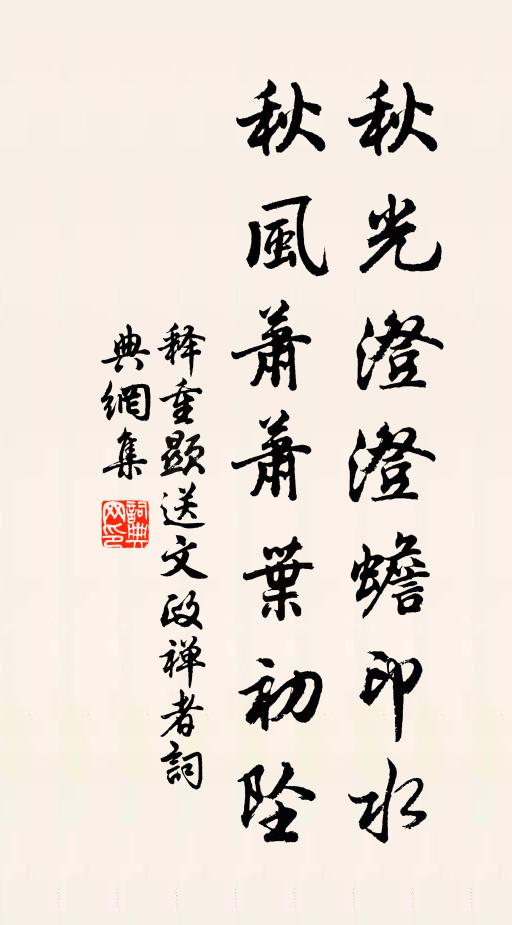 秋光澄澄蟾印水
秋風蕭蕭葉初坠
释重顯送文政禅者詞
典網集
詞典
网印